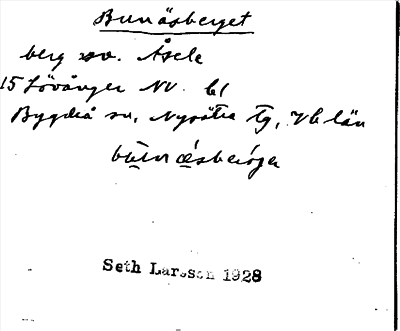 Bunäsberget
berg sv. Åsele
15 Lövånger NV. b1
Bygdeå sn, Nysätra tg, Vb län
Seth Larsson 1928